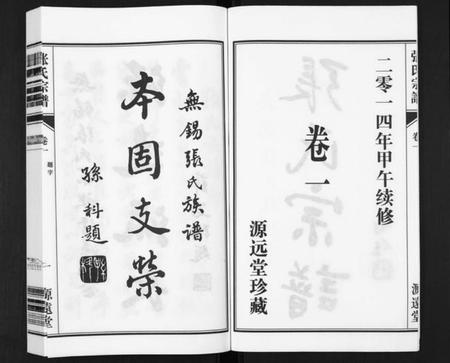 二零一四年甲午续修
卷一
源远堂珍藏
張氏宗譜
卷一
源遠堂
無錫張氏族譜
本固支榮
孫科題
張氏宗譜
卷一
題字
一
源遠堂